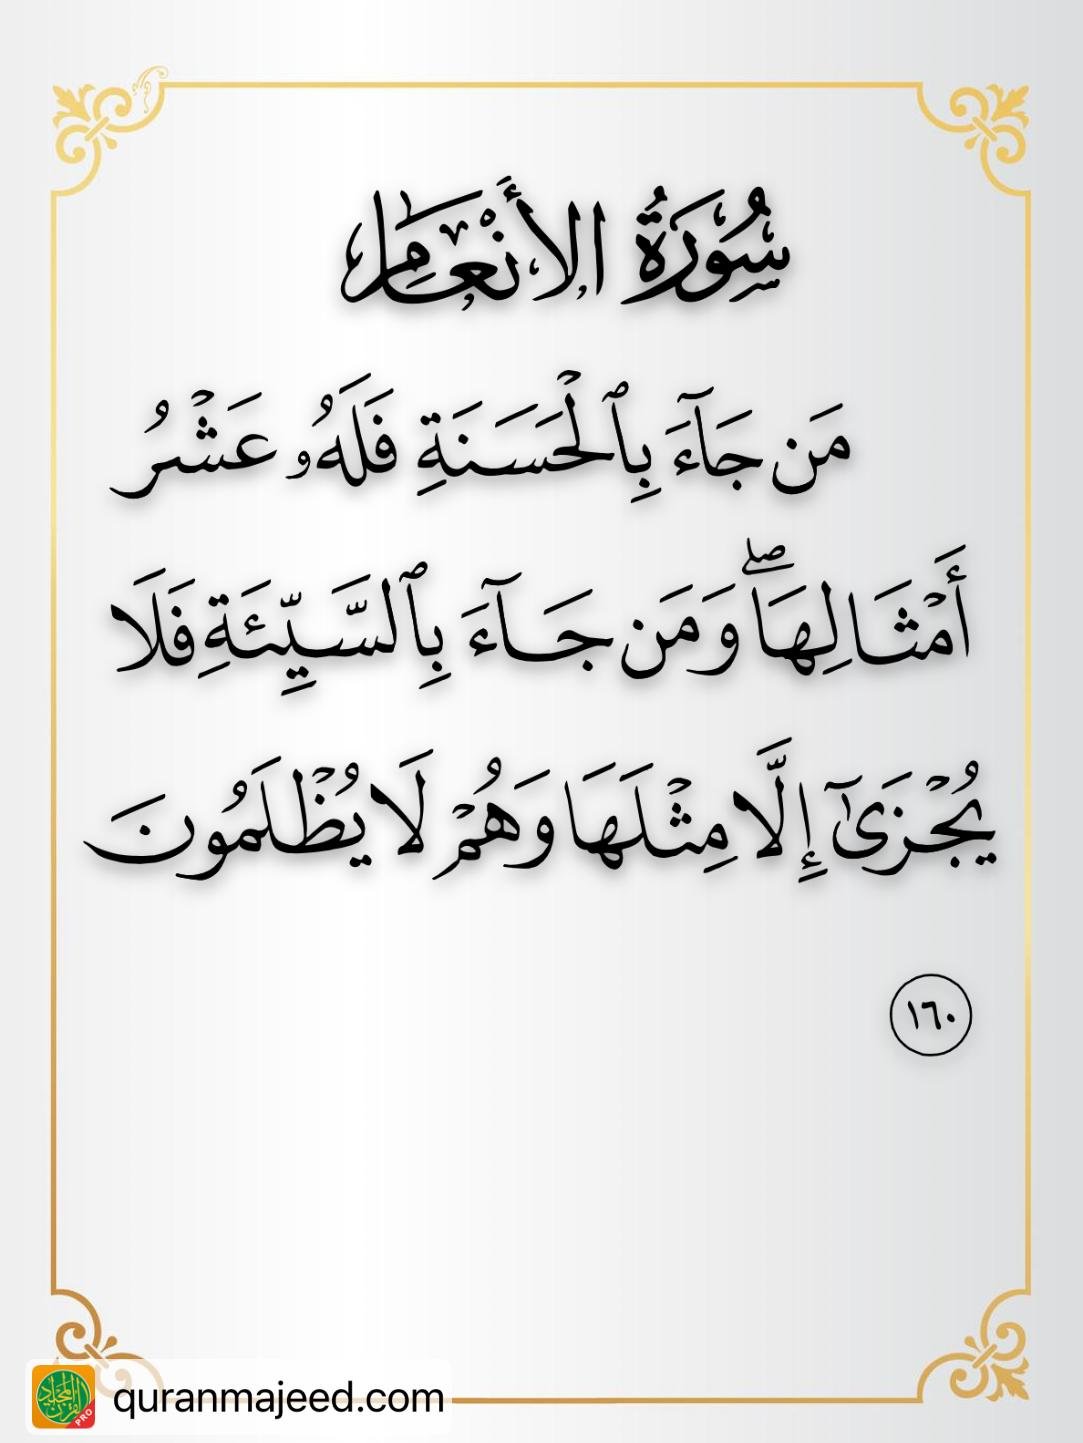 سُورَةُ الأَنْعَام
مَن جَآءَ بِٱلْحَسَنَةِ فَلَهُۥ عَشْرُ
أَمْثَالِهَا ۖ وَمَن جَآءَ بِٱلسَّيِّئَةِ فَلَا
يُجْزَىٰٓ إِلَّا مِثْلَهَا وَهُمْ لَا يُظْلَمُونَ
١٦٠
quranmajeed.com